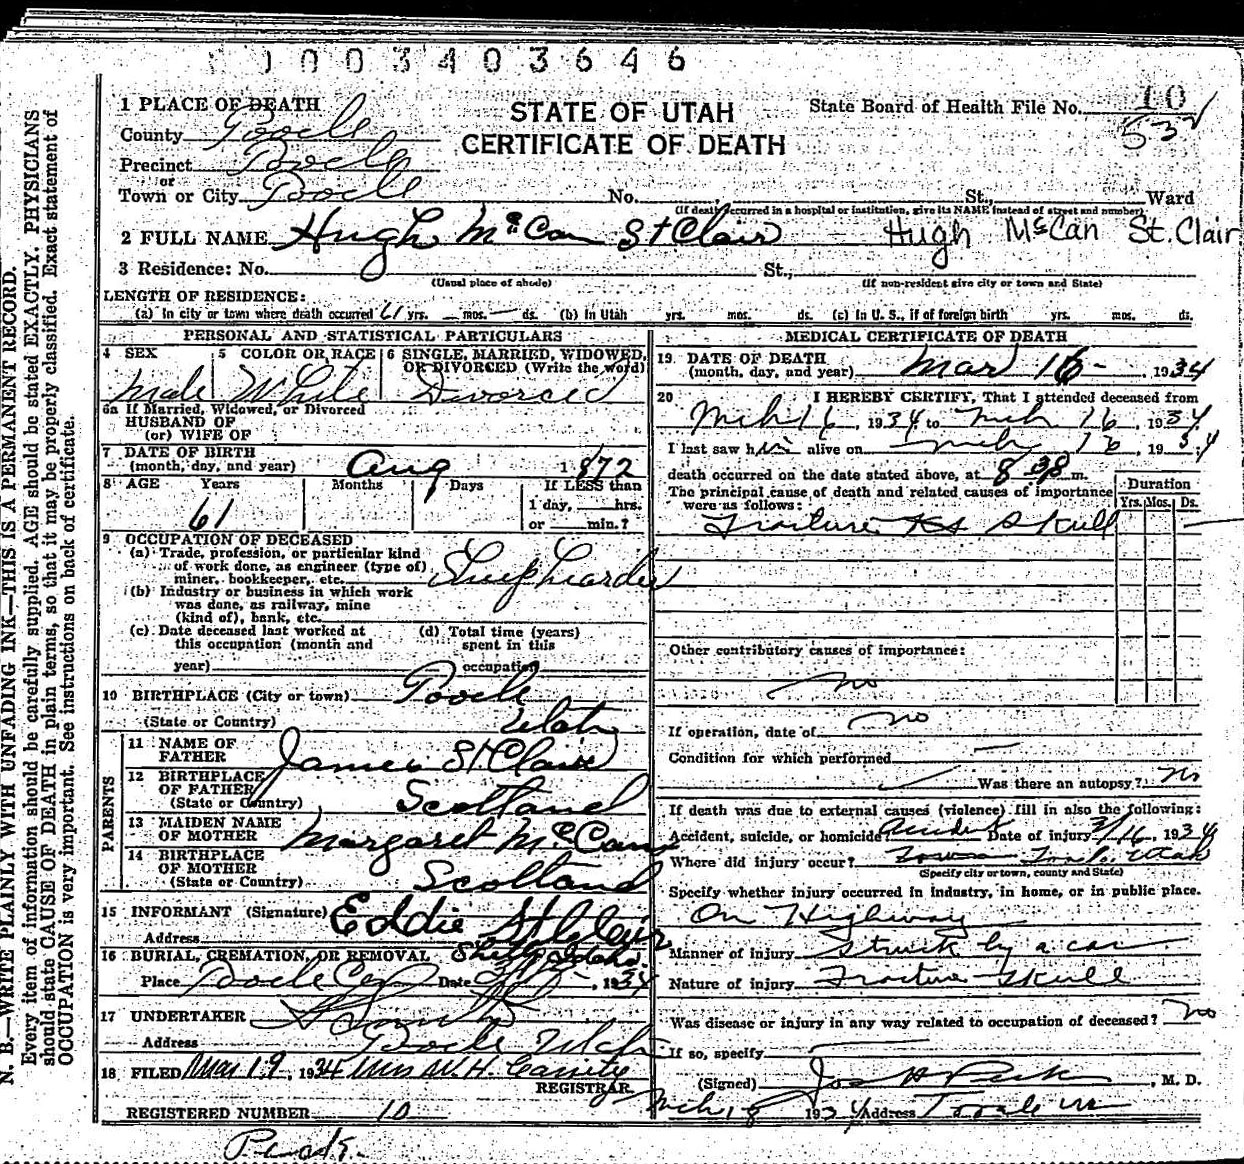 1003403646
1 PLACE OF DEATH
STATE OF UTAH
CERTIFICATE OF DEATH
State Board of Health File No. 10
532
County Tooele
Precinct Tooele
or
Town or City Tooele No. St., Ward
(If death occurred in a hospital or institution, give its NAME instead of street and number)
2 FULL NAME Hugh McCan St Clair Hugh McCan St. Clair
3 Residence: No. St.,
(Usual place of abode) (If non-resident give city or town and State)
LENGTH OF RESIDENCE:
(a) In city or town where death occurred 61 yrs. — mos. — ds. (b) In Utah yrs. mos. ds. (c) In U. S., if of foreign birth yrs. mos. ds.
PERSONAL AND STATISTICAL PARTICULARS
4 SEX 5 COLOR OR RACE 6 SINGLE, MARRIED, WIDOWED, OR DIVORCED (Write the word)
Male White Divorced
6a If Married, Widowed, or Divorced
HUSBAND OF
(or) WIFE OF
7 DATE OF BIRTH
(month, day, and year) Aug 1872
8 AGE Years Months Days If LESS than
61 1 day, hrs.
or min.?
9 OCCUPATION OF DECEASED
(a) Trade, profession, or particular kind
of work done, as engineer (type of)
miner, bookkeeper, etc.
(b) Industry or business in which work
was done, as railway, mine
(kind of), bank, etc.
(c) Date deceased last worked at (d) Total time (years)
this occupation (month and spent in this
year) occupation
10 BIRTHPLACE (City or town) Tooele
(State or Country) Utah
PARENTS
11 NAME OF
FATHER James St Clair
12 BIRTHPLACE
OF FATHER
(State or Country) Scotland
13 MAIDEN NAME
OF MOTHER Margaret McCann
14 BIRTHPLACE
OF MOTHER
(State or Country) Scotland
15 INFORMANT (Signature) Eddie St Clair
Address Shelly Idaho
16 BURIAL, CREMATION, OR REMOVAL
Place Tooele Cem Date 1934
17 UNDERTAKER
Address Tooele Utah
18 FILED Mar 19, 1934 W. H. Cassity
REGISTRAR
REGISTERED NUMBER 10
MEDICAL CERTIFICATE OF DEATH
19. DATE OF DEATH
(month, day, and year) Mar 16 - , 1934
20 I HEREBY CERTIFY, That I attended deceased from
Mch 16, 1934 to Mch 16, 1934.
I last saw him alive on Mch 16 1934
death occurred on the date stated above, at 8.38 m.
The principal cause of death and related causes of importance
were as follows: Duration
Yrs. Mos. Ds.
Fracture of Skull
Other contributory causes of importance:
no
If operation, date of no
Condition for which performed —
Was there an autopsy? no
If death was due to external causes (violence) fill in also the following:
Accident, suicide, or homicide? Accident Date of injury 3/16, 1934
Where did injury occur? Utah
(Specify city or town, county and State)
Specify whether injury occurred in industry, in home, or in public place.
On Highway
Manner of injury Struck by a car
Nature of injury Fracture Skull
Was disease or injury in any way related to occupation of deceased? no
If so, specify
(Signed) Jos H Peck, M. D.
Mch 18 1934 Address Tooele
N. B.—WRITE PLAINLY WITH UNFADING INK—THIS IS A PERMANENT RECORD.
Every item of information should be carefully supplied. AGE should be stated EXACTLY. PHYSICIANS
should state CAUSE OF DEATH in plain terms, so that it may be properly classified. Exact statement of
OCCUPATION is very important. See instructions on back of certificate.